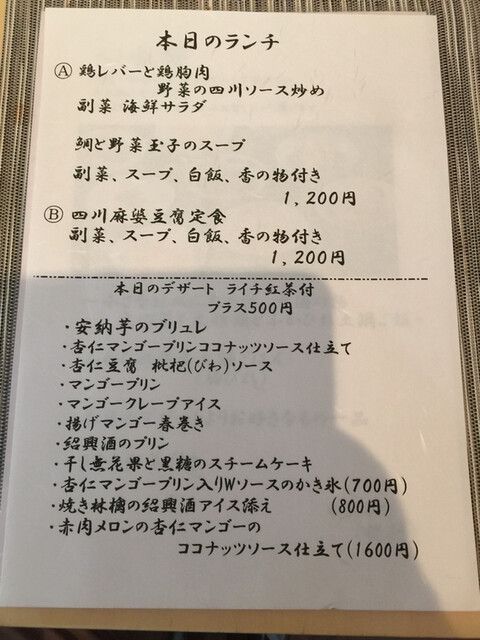 本日のランチ
Ⓐ 鶏レバーと鶏胸肉
野菜の四川ソース炒め
副菜 海鮮サラダ
鯛と野菜玉子のスープ
副菜、スープ、白飯、香の物付き
1,200円
Ⓑ 四川麻婆豆腐定食
副菜、スープ、白飯、香の物付き
1,200円
本日のデザート ライチ紅茶付
プラス500円
・安納芋のブリュレ
・杏仁マンゴープリンココナッツソース仕立て
・杏仁豆腐 枇杷(びわ)ソース
・マンゴープリン
・マンゴークレープアイス
・揚げマンゴー春巻き
・紹興酒のプリン
・干し無花果と黒糖のスチームケーキ
・杏仁マンゴープリン入りWソースのかき氷(700円)
・焼き林檎の紹興酒アイス添え (800円)
・赤肉メロンの杏仁マンゴーの
ココナッツソース仕立て(1600円)